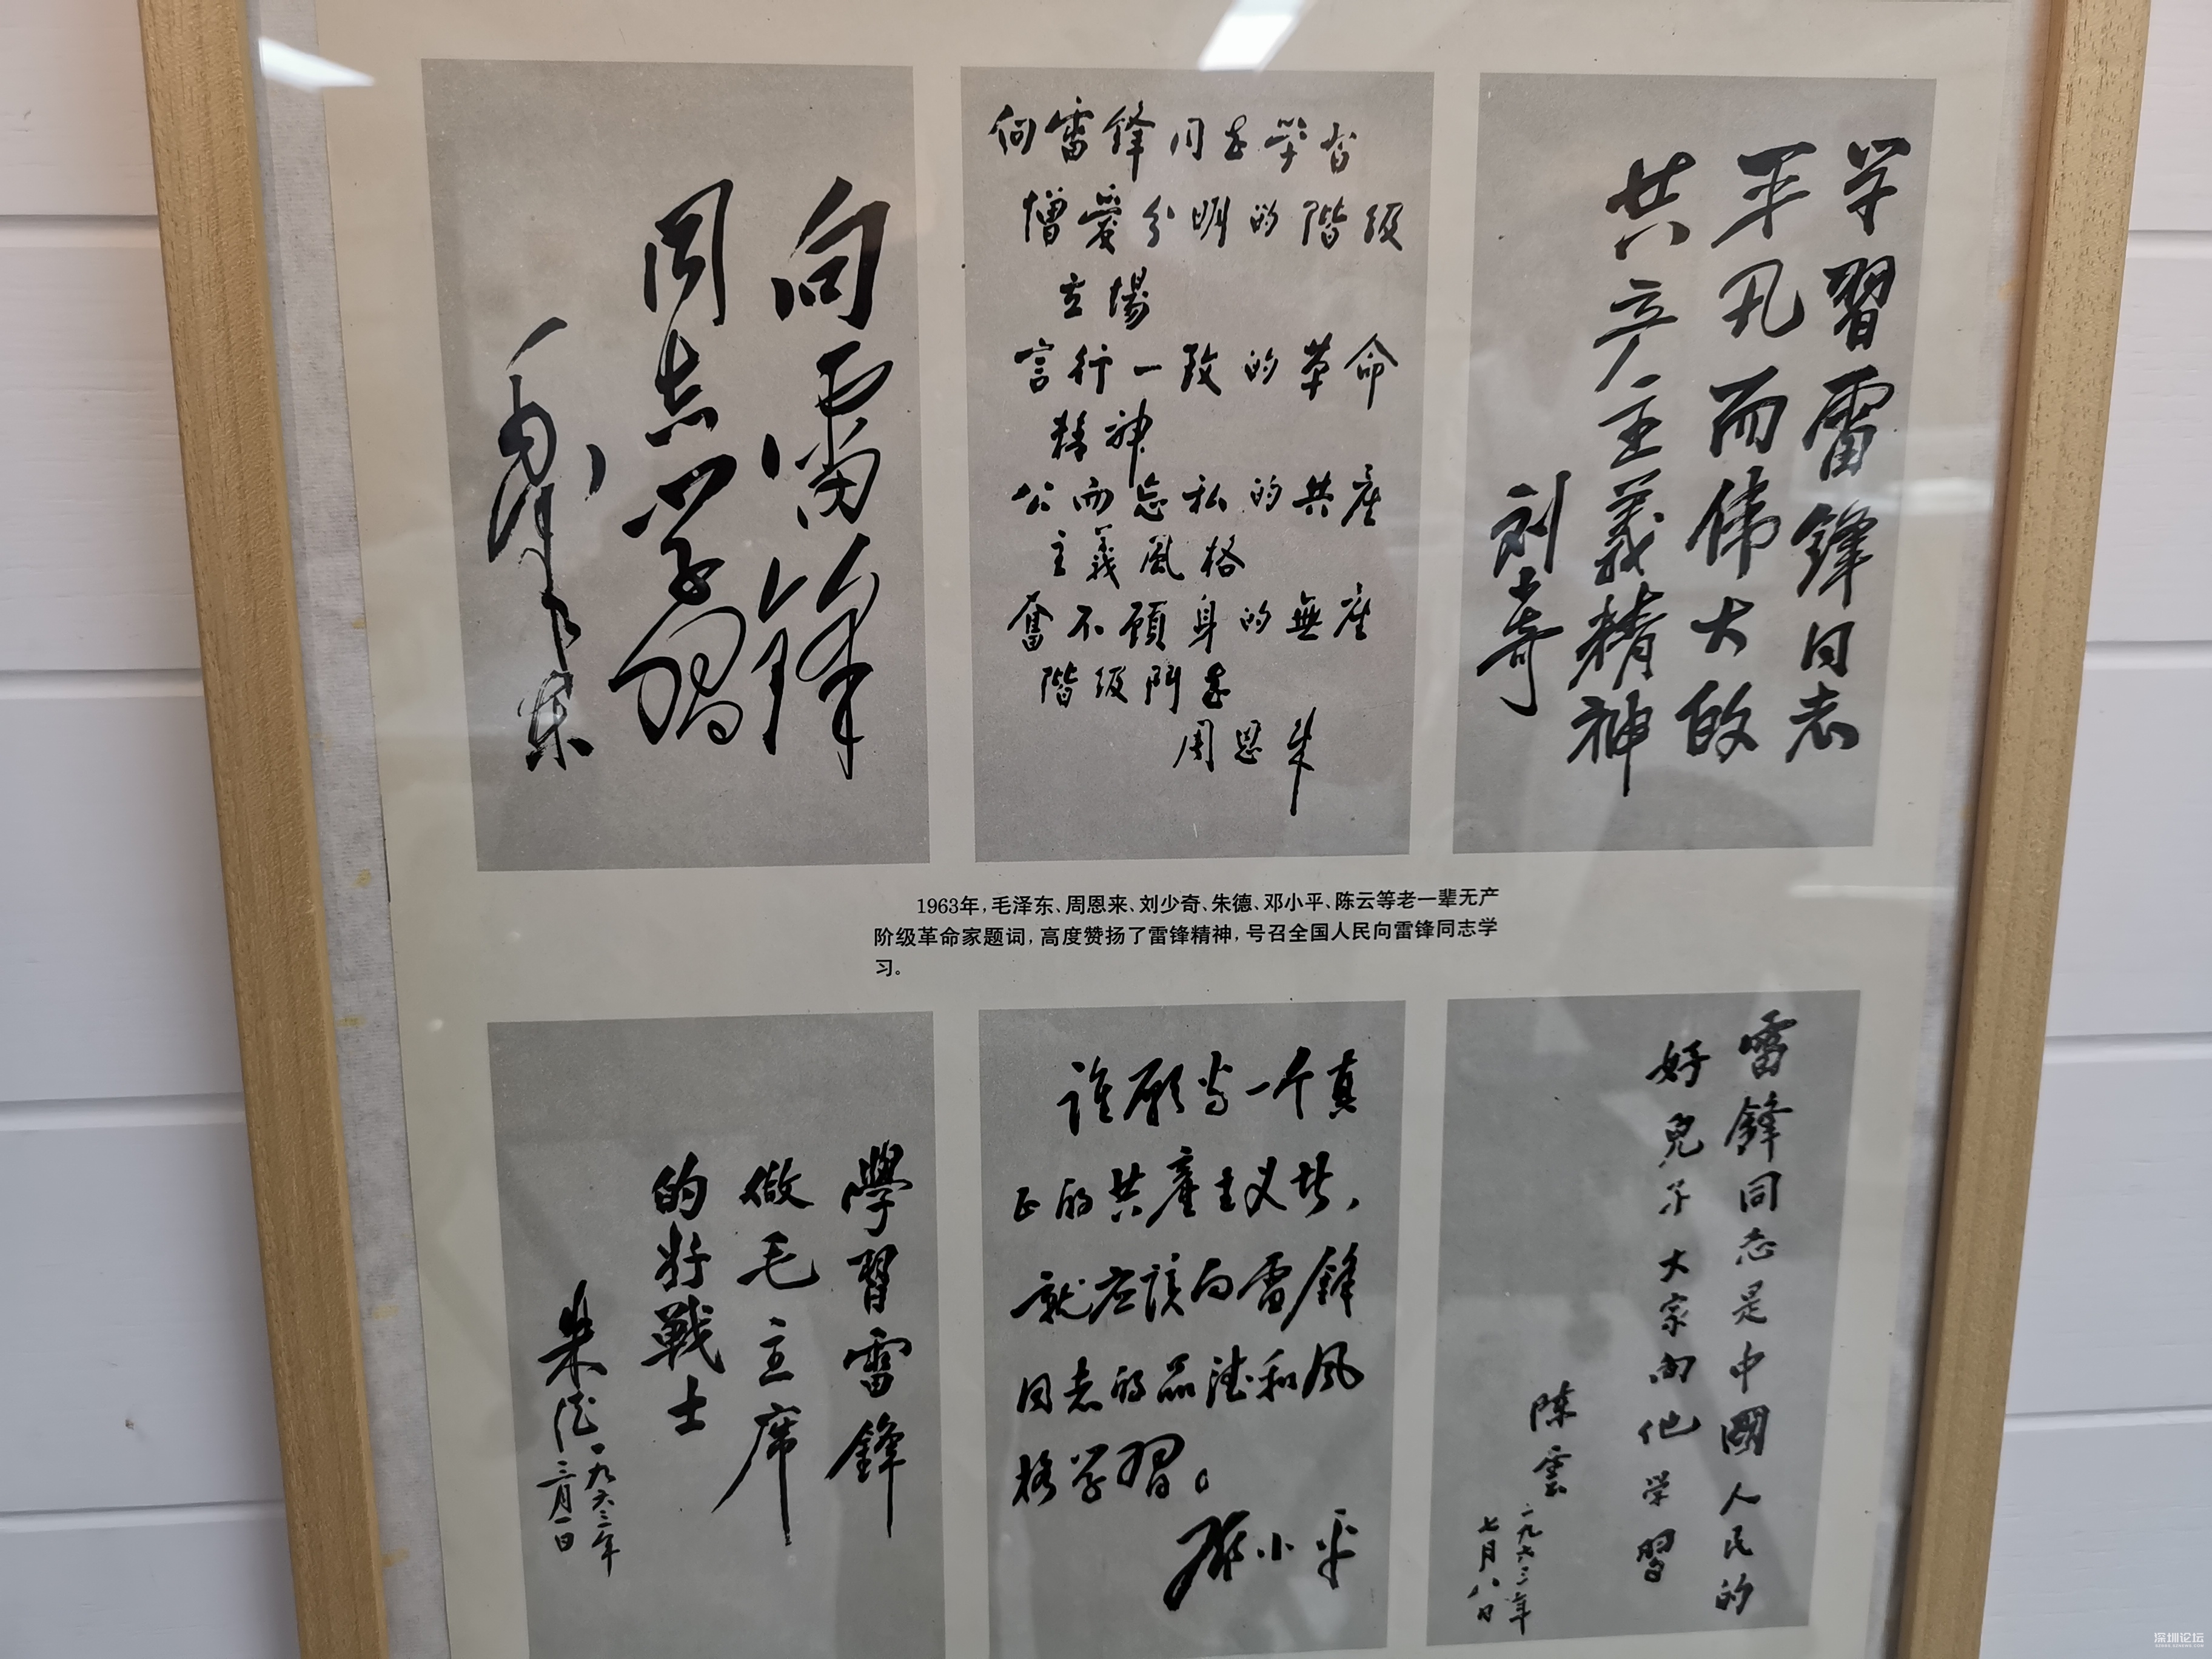 向雷锋
同志学习
毛泽东
向雷鋒同志学習
憎爱分明的階级
立場
言行一致的革命
精神
公而忘私的共産
主義風格
奮不顧身的無産
階级鬥志
周恩来
学習雷鋒同志
平凡而伟大的
共产主義精神
刘少奇
1963年,毛泽东、周恩来、刘少奇、朱德、邓小平、陈云等老一辈无产
阶级革命家题词,高度赞扬了雷锋精神,号召全国人民向雷锋同志学
习。
學習雷鋒
做毛主席
的好戰士
朱德
一九六三年
三月一日
谁愿当一个真
正的共產主义者,
就应该向雷鋒
同志的品德和风
格学習。
邓小平
雷鋒同志是中國人民的
好兒子大家向他学習
陈雲
一九六三年
七月八日
深圳论坛